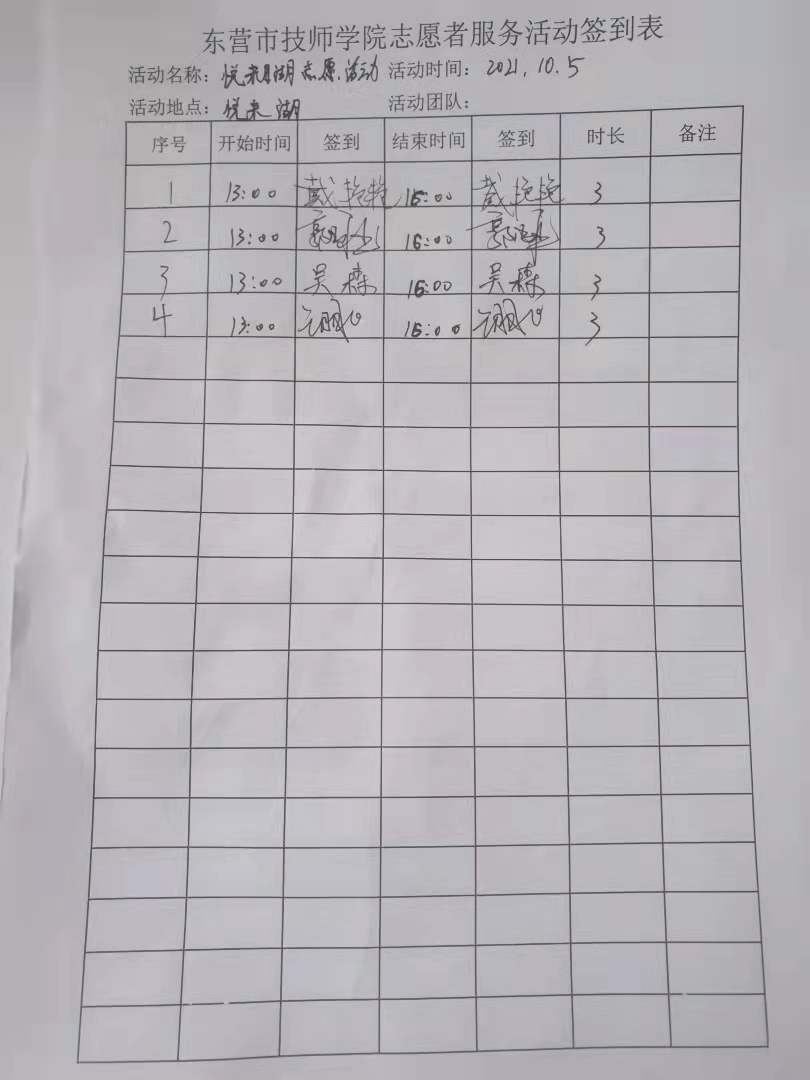 东营市技师学院志愿者服务活动签到表
活动名称：悦来湖志愿活动 活动时间：2021.10.5
活动地点：悦来湖 活动团队：
序号 开始时间 签到 结束时间 签到 时长 备注
1 13:00 戴艳艳 16:00 戴艳艳 3
2 13:00 16:00 3
3 13:00 吴森 16:00 吴森 3
4 13:00 16:00 3